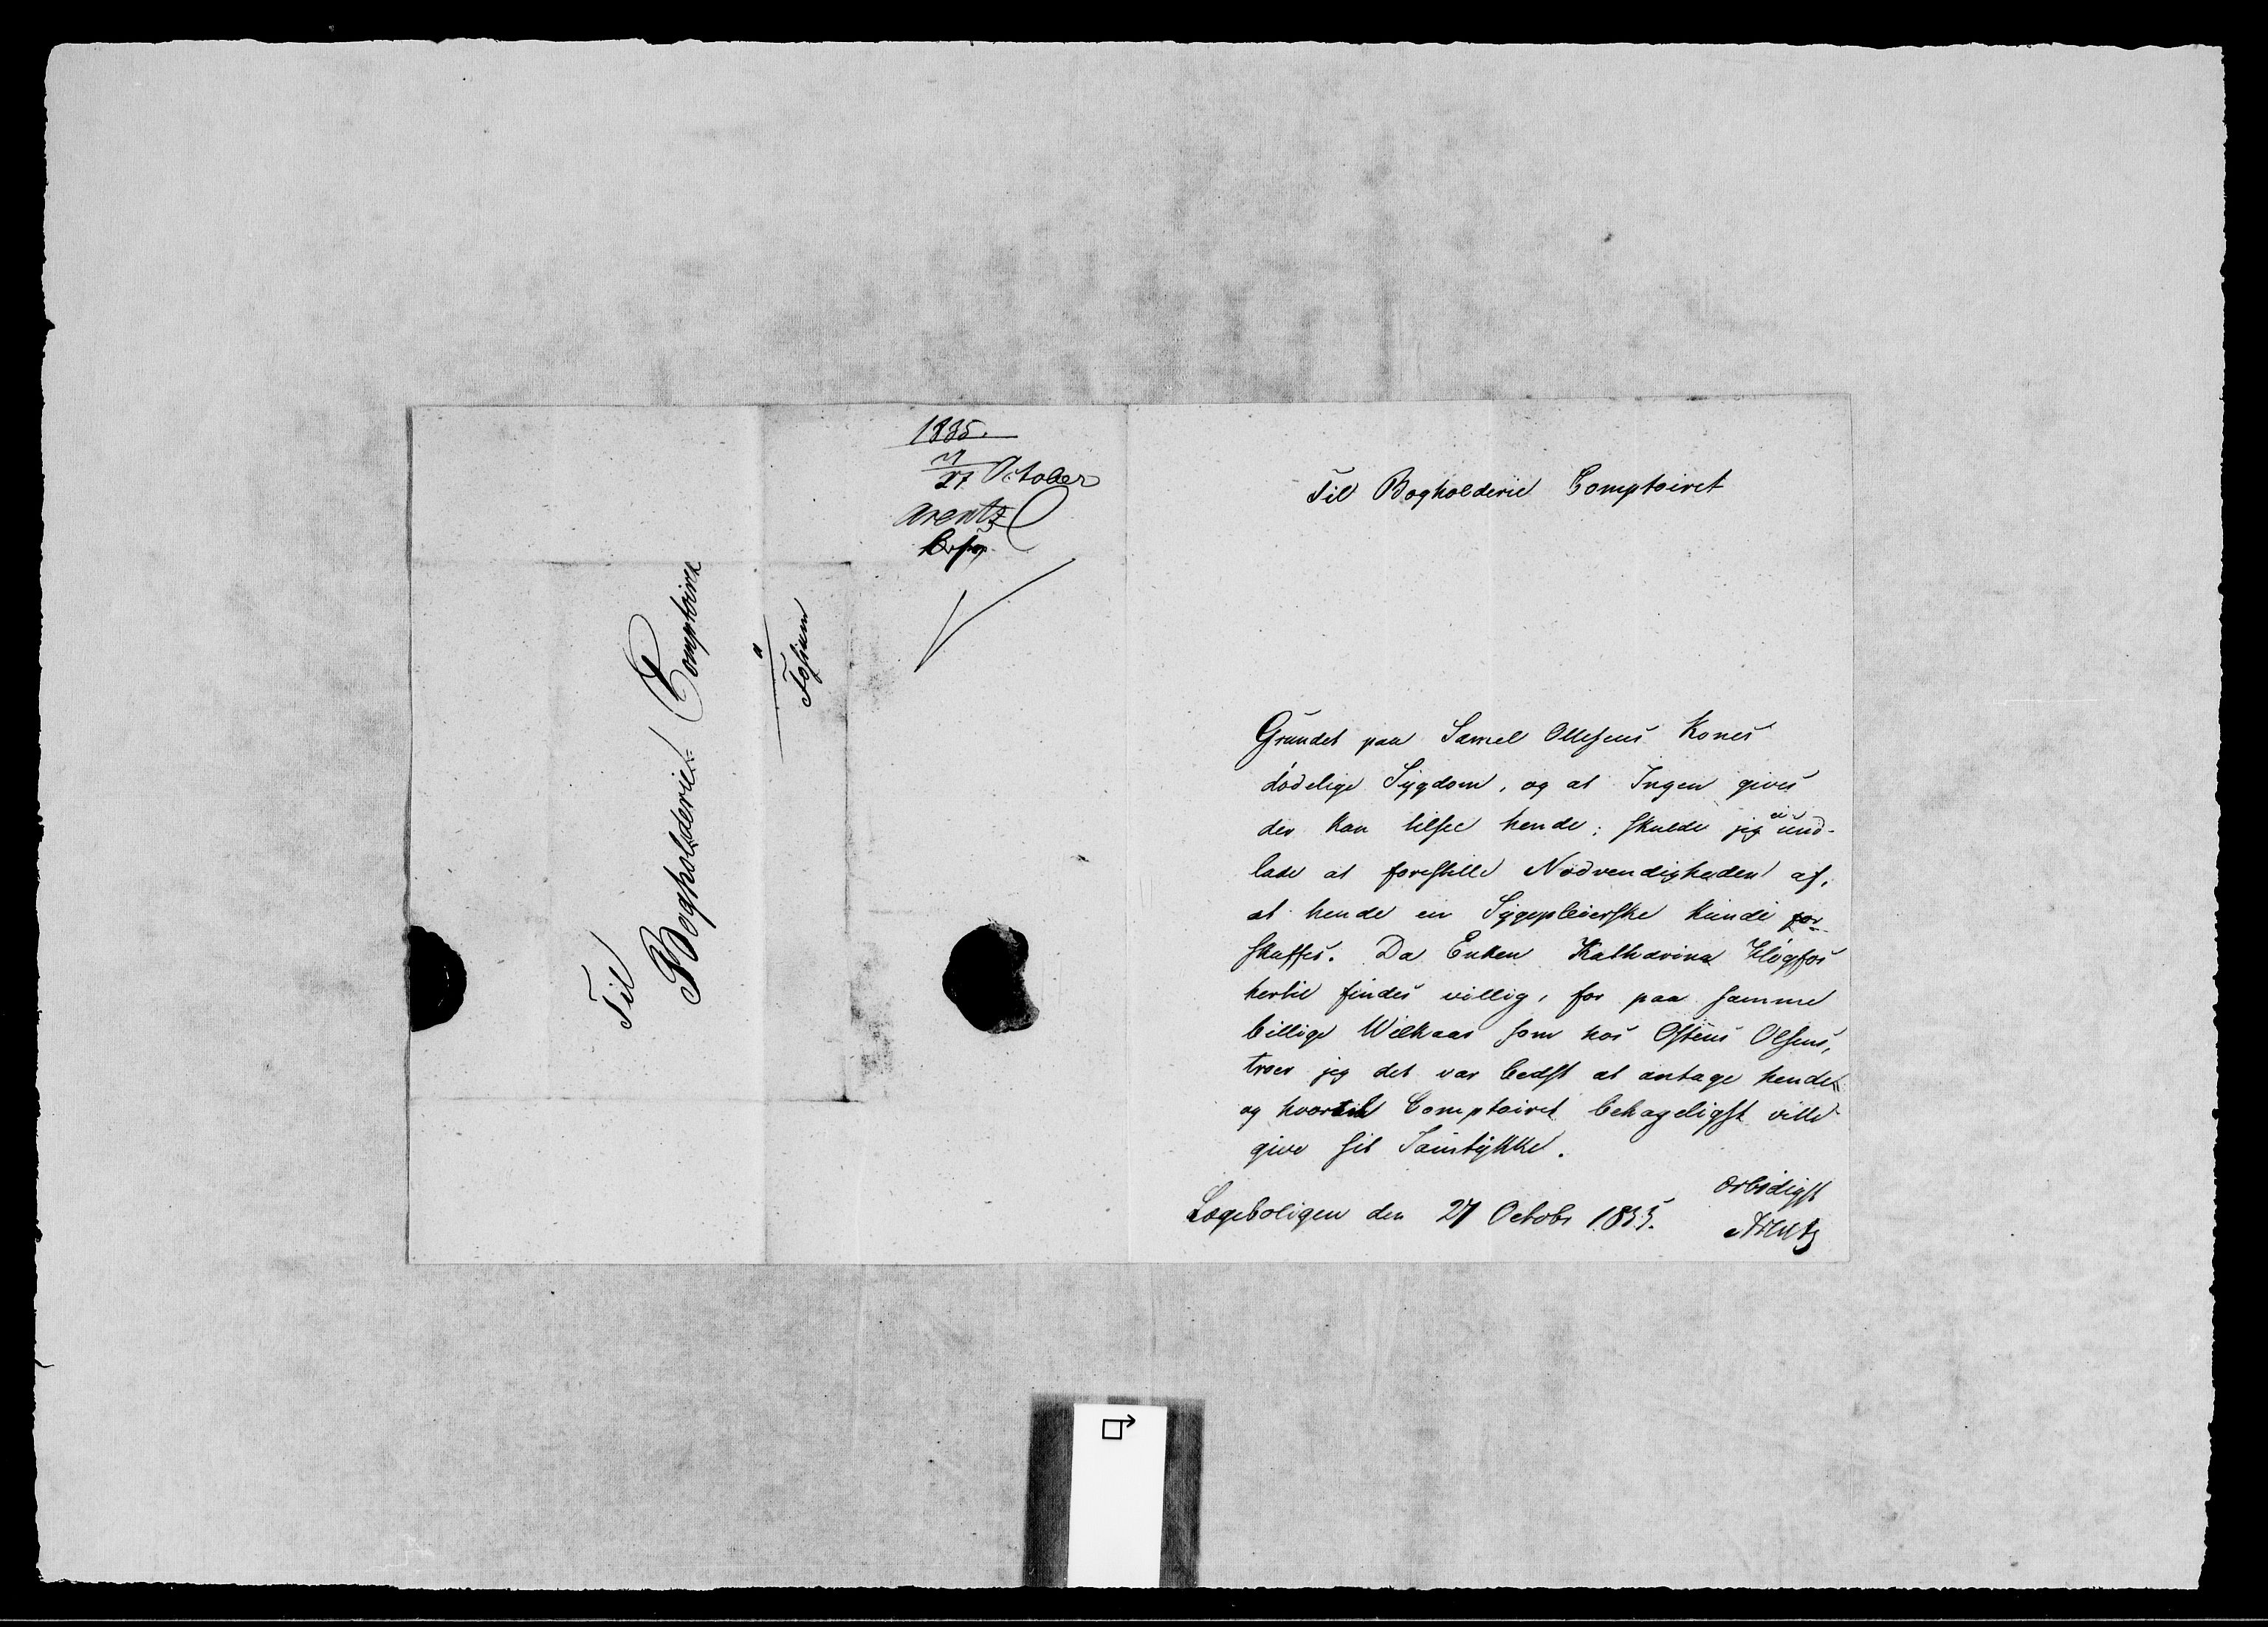 1835.
27 October
Arentz
Til
Bogholderiet Comptoiret
a
Fossum
Til Bogholderie Comptoiret
Grundet paa Samel Ollesens Kones
dødelige Sygdom, og at Ingen gives
der kan tilsee hende; skulde jeg ei und-
lade at forestille Nødvendigheden af,
at hende en Sygepleierske kunde for-
skaffes. Da Enken Katharina Kløgfos
hertil findes villig, for paa samme
billige Wilkaar som hos Østens Olsens,
troer jeg det var bedst at antage hende
og hvortil Comptoiret behageligst ville
give sit Samtykke.
Lægeboligen den 27 Octobr 1835.
Ærbødigst
Arentz